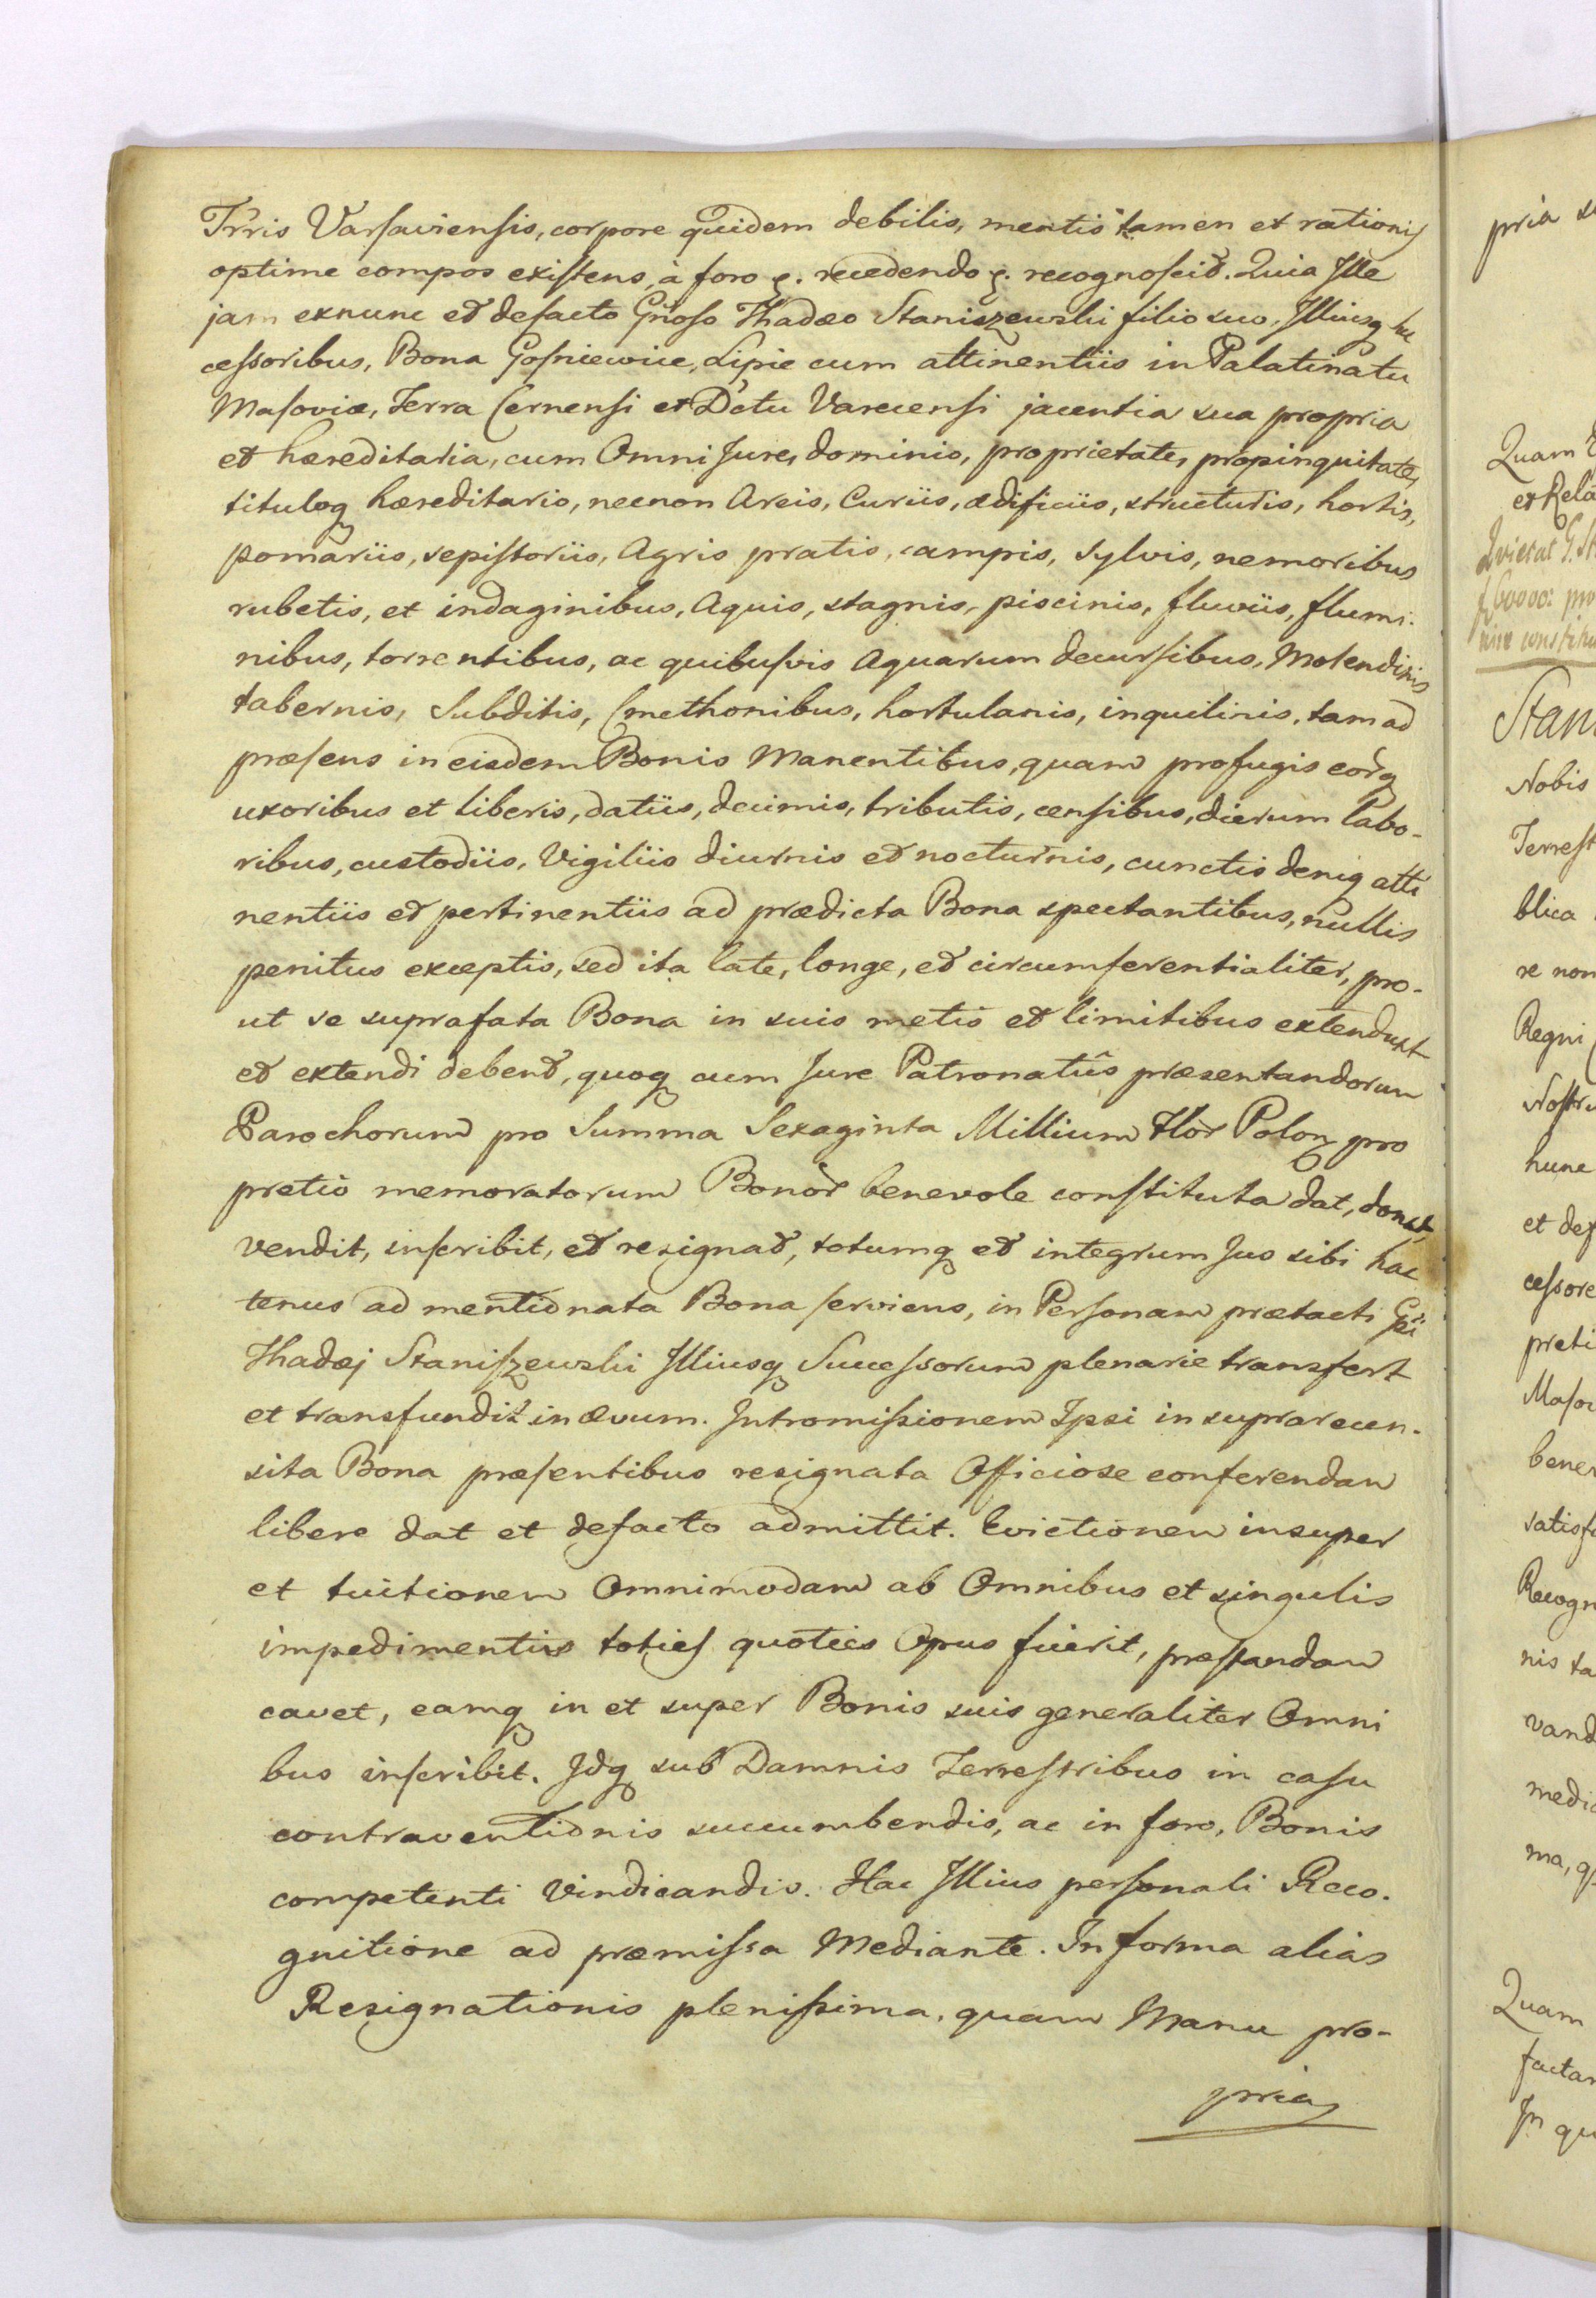 Trris Varsaviensis, corpore quidem debilis, mentis tamen et rationis
optime compos existens, à foro &. recedendo &. recognoscit. Quia Ille
jam exnunc et defacto Gnoso Thadæo Staniszewski filio suo, Illiusq Suc
cessoribus, Bona Gosniewice, Lipie cum attinentiis in Palatinatu
Masoviæ, Terra Cernensi et Dctu Varecensi jacentia sua propria
et hæreditaria, cum Omni Jure, dominio, proprietate, propinquitate,
tituloq hæreditario, necnon Areis, Curiis, ædificiis, structuris, hortis,
pomariis, sepistoriis, Agris pratis, campis, Sylvis, nemoribus
rubetis, et indaginibus, Aquis, stagnis, piscinis, fluviis, flumi-
nibus, torrentibus, ac quibusvis Aquarum decursibus, Molendinis
tabernis, Subditis, Cmethonibus, hortulanis, inquilinis, tam ad
præsens in eisdem Bonis Manentibus, quam profugis eorq
uxoribus et liberis, datiis, decimis, tributis, censibus, dierum labo-
ribus, custodiis, Vigiliis diurnis et nocturnis, cunctis deniq atti
nentiis et pertinentiis ad prædicta Bona spectantibus, nullis
penitus exceptis, sed ita late, longe, et circumferentialiter, pro-
ut se suprafata Bona in suis metis et limitibus extendunt
et extendi debent, quoq cum Jure Patronatûs præsentandorum
Parochorum pro Summa Sexaginta Millium Flor Polon pro
pretio memoratorum Bonor benevole constituta dat, donat,
vendit, inscribit, et resignat, totumq et integrum Jus sibi hac
tenus ad mentionata Bona serviens, in Personam prætacti Gsi
Thadæj Staniszewski Illiusq Successorum plenarie transfert
et transfundit in ævum. Intromissionem Ipsi in suprarecen-
sita Bona præsentibus resignata Officiose conferendam
libere dat et defacto admittit. Evictionem insuper
et tuitionem Omnimodam ab Omnibus et singulis
impedimentis toties quoties Opus fuerit, præstandam
cavet, eamq in et super Bonis suis generaliter Omni
bus inscribit. Idq sub Damnis Terrestribus in casu
contraventionis succumbendis, ac in foro, Bonis
competenti Vindicandis. Hac Illius personali Reco-
gnitione ad præmissa Mediante. In forma alias
Resignationis plenissima, quam Manu pro-
pria
pria
Quam
et Rela
Quietat G. St
f 60000: pro
constitu
Stan
Nobis
Terrest
blica
re non
Regni
Nostr
hunc
et def
cessore
preti
Masov
benev
satisf
Recogn
nis ta
vand
medi
ma, q
Quam
factam
In qu